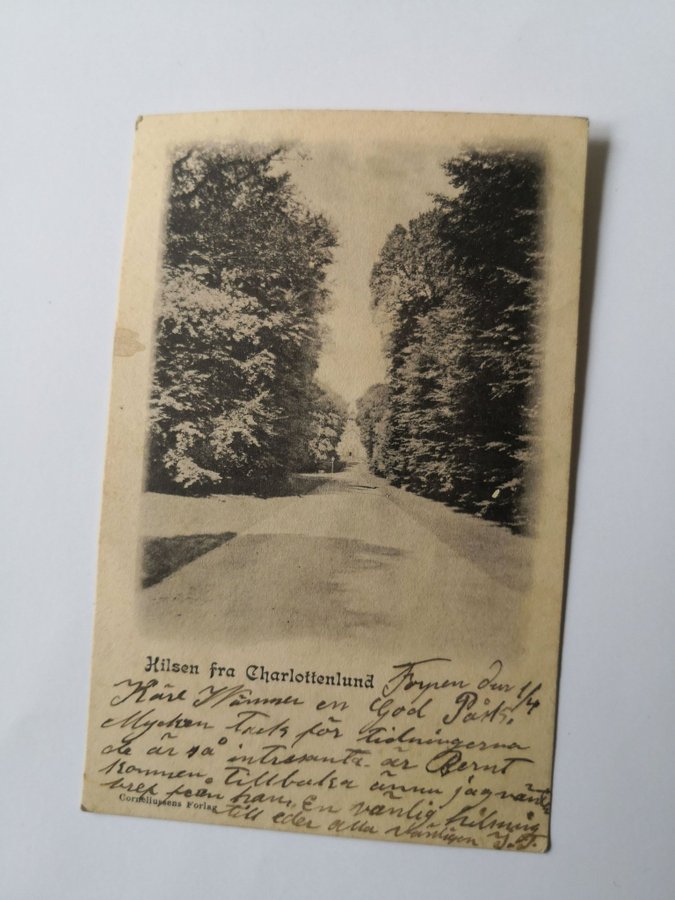 Hilsen fra Charlottenlund
den 1/4
Käre Wänner en God Påsk.
Mycken Tack för tidningarna
de är så intresanta. är Bernt
kommen tillbaka ännu jag väntar
bref från ham. En vänlig hilsning
Corneliussens Forlag
till eder alla vänligen J.F.